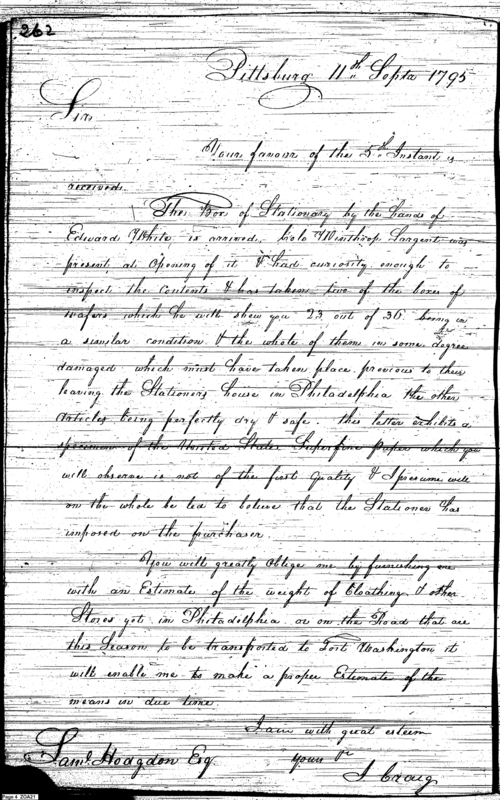 262
Pittsburg 11th Septa 1795
Sir
Your favour of the 5th Instant is
received.
The Box of Stationary by the hands of
Edward White, is arrived, Colo Winthrop Sargent was
present at opening of it & had curiosity enough to
inspect the Contents & has taken two of the boxes of
wafers which he will shew you 23 out of 36 being in
a similar condition & the whole of them in some degree
damaged which must have taken place previous to their
leaving the Stationers house in Philadelphia the other
Articles being perfectly dry & safe. this letter exhibits a
specimen of the United States Superfine paper which you
will observe is not of the first quality & I presume will
on the whole be led to believe that the Stationer has
imposed on the purchaser.
You will greatly oblige me by furnishing me
with an Estimate of the weight of Cloathing & other
Stores yet in Philadelphia or on the Road that are
this Season to be transported to Fort Washington it
will enable me to make a proper Estimate of the
means in due time.
I am with great esteem
Saml. Hodgdon Esq. Yours &c
I Craig
Page 4 ZOA21